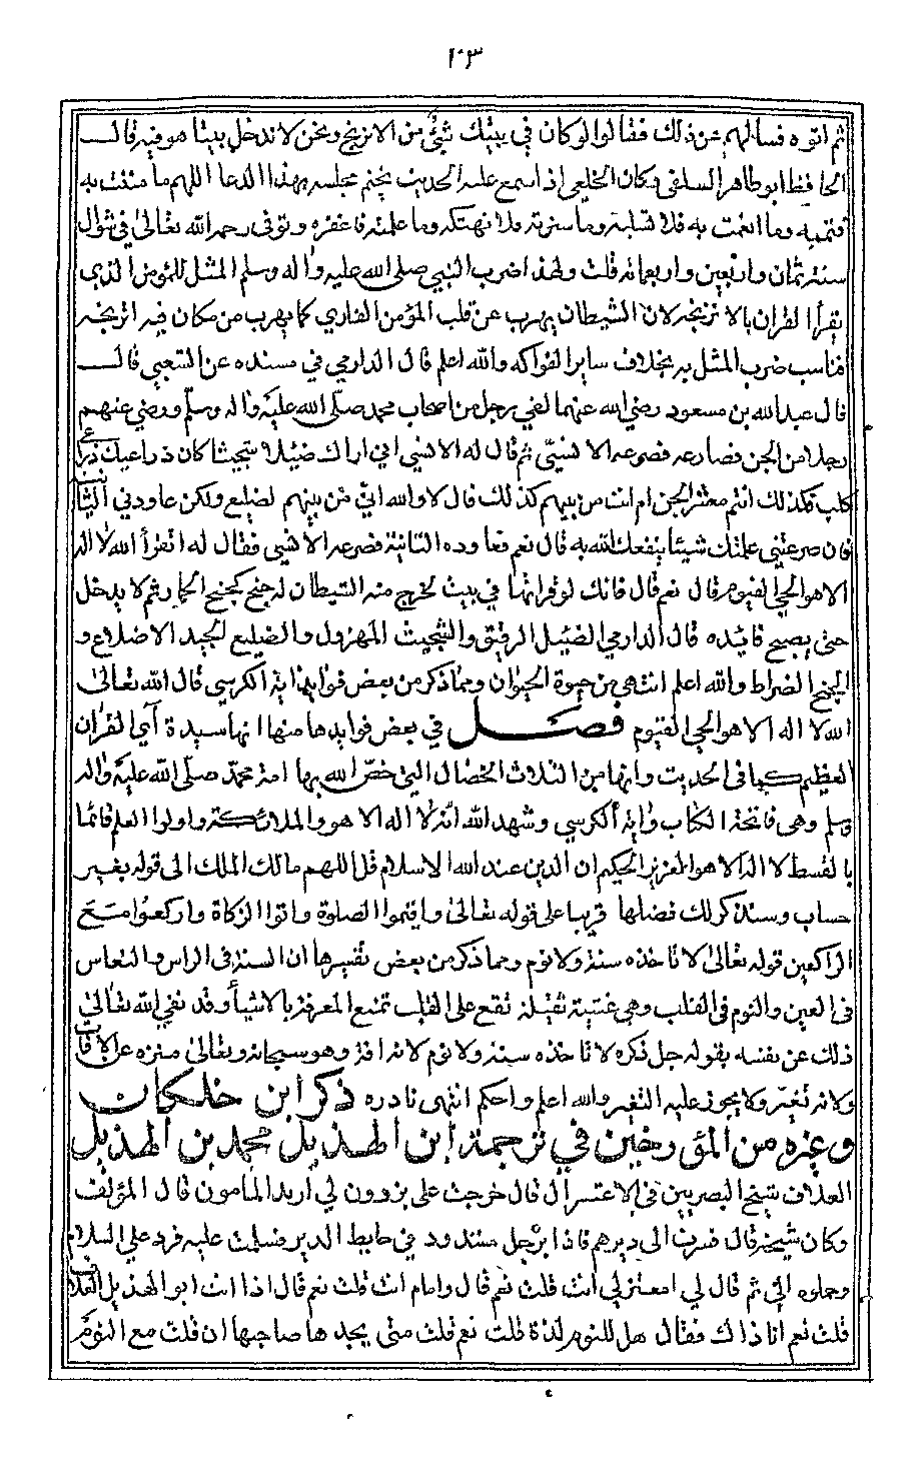 ٢٣
ثم اتوه فسالهم عن ذلك فقالوا لو كان في بيتك شئ من الاترنج ونحن لا ندخل بيتا هو فيه قال
الحافظ ابو طاهر السلفي وكان الخلعي اذا سمع عليه الحديث يختم مجلسه بهذا الدعا اللهم ما مننت به
فتممه وما انعمت به فلا تسلبه وما سترته فلا تهتكه وما علمته فاغفره وتوفى رحمه الله تعالى في شوال
سنة ثمان واربعين واربعمائه قلت ولهذا ضرب النبي صلى الله عليه واله وسلم المثل للمؤمن الذى
يقرأ القران بالاترنجه لان الشيطان يهرب عن قلب المؤمن القاري كما يهرب من مكان فيه اترنجه
فناسب ضرب المثل به بخلاف ساير الفواكه والله اعلم قال الدارمي في مسنده عن الشعبي قال
قال عبد الله بن مسعود رضي الله عنهما لقي رجل من اصحاب محمد صلى الله عليه واله وسلم ورضي عنهم
رجلا من الجن فصارعه فصرعه الانسيّ ثم قال له الانسي اني اراك ضئيلا شجيثا كان ذراعيك ذراعي
كلب فكذلك انتم معشر الجن ام انت من بينهم كذلك قال لا والله اني من بينهم لضليع ولكن عاودني الثانية
فان صرعتني علمتك شيئا ينفعك الله به قال نعم فعاوده الثانية فصرعه الانسي فقال له اتقرأ الله لا اله
الا هو الحي القيوم قال نعم قال فانك لو قراتها في بيت لخرج منه الشيطان له خبج كخبج الحمار ثم لا يدخل
حتى يصبح فائده قال الدارمي الضئيل الرقيق والشجيث المهزول والضليع لجيد الاضلاع و
الخبج الضراط والله اعلم انتهى من حيوة الحيوان ومما ذكر من بعض فوايد اية الكرسي قال الله تعالى
الله لا اله الا هو الحي القيوم فصل في بعض فوايدها منها انها سيدة آي القران
العظيم كما في الحديث وانها من الثلاث الخصال التي خصّ الله بها امة محمد صلى الله عليه واله
وسلم وهى فاتحة الكتاب واية الكرسي وشهد الله انه لا اله الا هو والملائكة واولوا العلم قائما
بالقسط لا اله الا هو العزيز الحكيم ان الدين عند الله الاسلام قل اللهم مالك الملك الى قوله بغير
حساب وسنذكر لك فضلها قريبا على قوله تعالى واقيموا الصلوة واتوا الزكاة واركعوا مع
الراكعين قوله تعالى لا تاخذه سنة ولا نوم ومما ذكر من بعض تفسيرها ان السنة في الراس والنعاس
فى العين والنوم فى القلب وهي غشية ثقيلة تقع على القلب تمنع المعرفة بالاشيأ وقد نفي الله تعالى
ذلك عن نفسه بقوله جل ذكره لا تاخذه سنة ولا نوم لانه افة وهو سبحانه وتعالى منزه عن الافات
ولانه تغيّر ولا يجوز عليه التغير والله اعلم واحكم انتهى نادره ذكر ابن خلكان
وغيره من المؤرخين في ترجمة ابن الهذيل محمد بن الهذيل
العلاف شيخ البصريين فى الاعتسرال قال خرجت على برذون لي اريد المامون قال المؤلف
وكان شيخه قال فسرت الى دير هم فاذا برجل مشدود في حايط الدير فسلمت عليه فرد علي السلام
وحملوه الي ثم قال لي امعتزلي انت قلت نعم قال وامام انت قلت نعم قال اذا انت ابو الهذيل العلاف
قلت نعم انا ذاك فقال هل للنوم لذة قلت نعم قلت متى يجد ها صاحبها ان قلت مع النوم